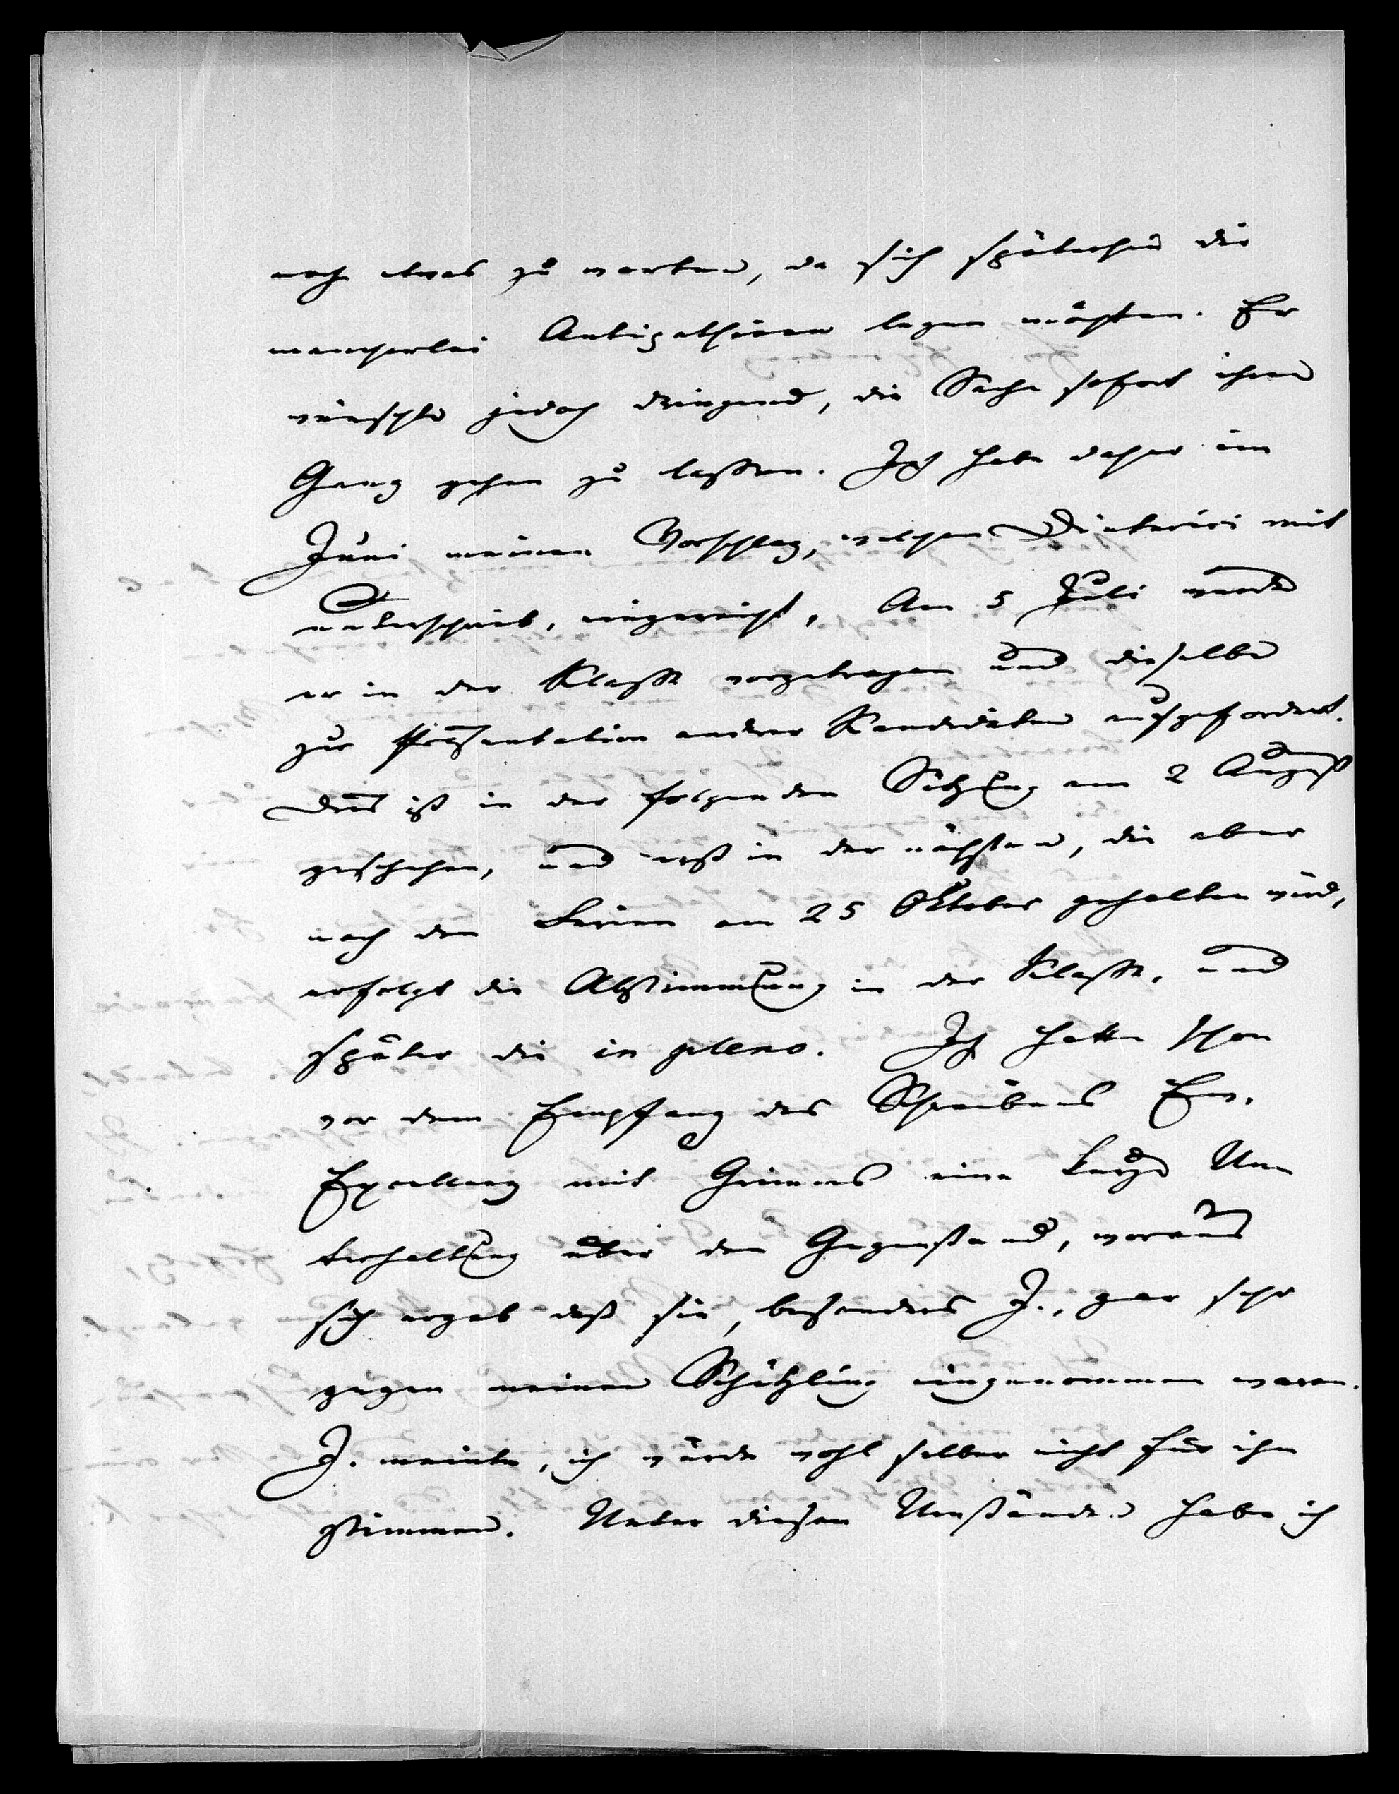 noch etwas zu warten, da sich späterhin die
mancherlei Antipathieen legen möchten. Er
wünschte jedoch dringend, die Sache sofort ihren
Gang gehen zu lassen. Ich habe daher im
Juni meinen Vorschlag, welchen Dieterici mit
unterschrieb, eingereicht. Am 5 Juli wurde
er in der Klasse vorgetragen und dieselbe
zur Präsentation andrer Kandidaten aufgefordert.
Dies ist in der folgenden Sitzung am 2 August
geschehen, und erst in der nächsten, die aber
nach den Ferien am 25 Oktober gehalten wird,
erfolgt die Abstimmung in der Klasse, und
später die in pleno. Ich hatte schon
vor dem Empfang des Schreibens Ew.
Excellenz mit Grimms eine lange Un
terhaltung über den Gegenstand, woraus
sich ergab daß sie, besonders J., gar sehr
gegen meinen Schützling eingenommen waren.
J. meinte, ich würde wohl selber nicht für ihn
stimmen. Unter diesen Umständen habe ich